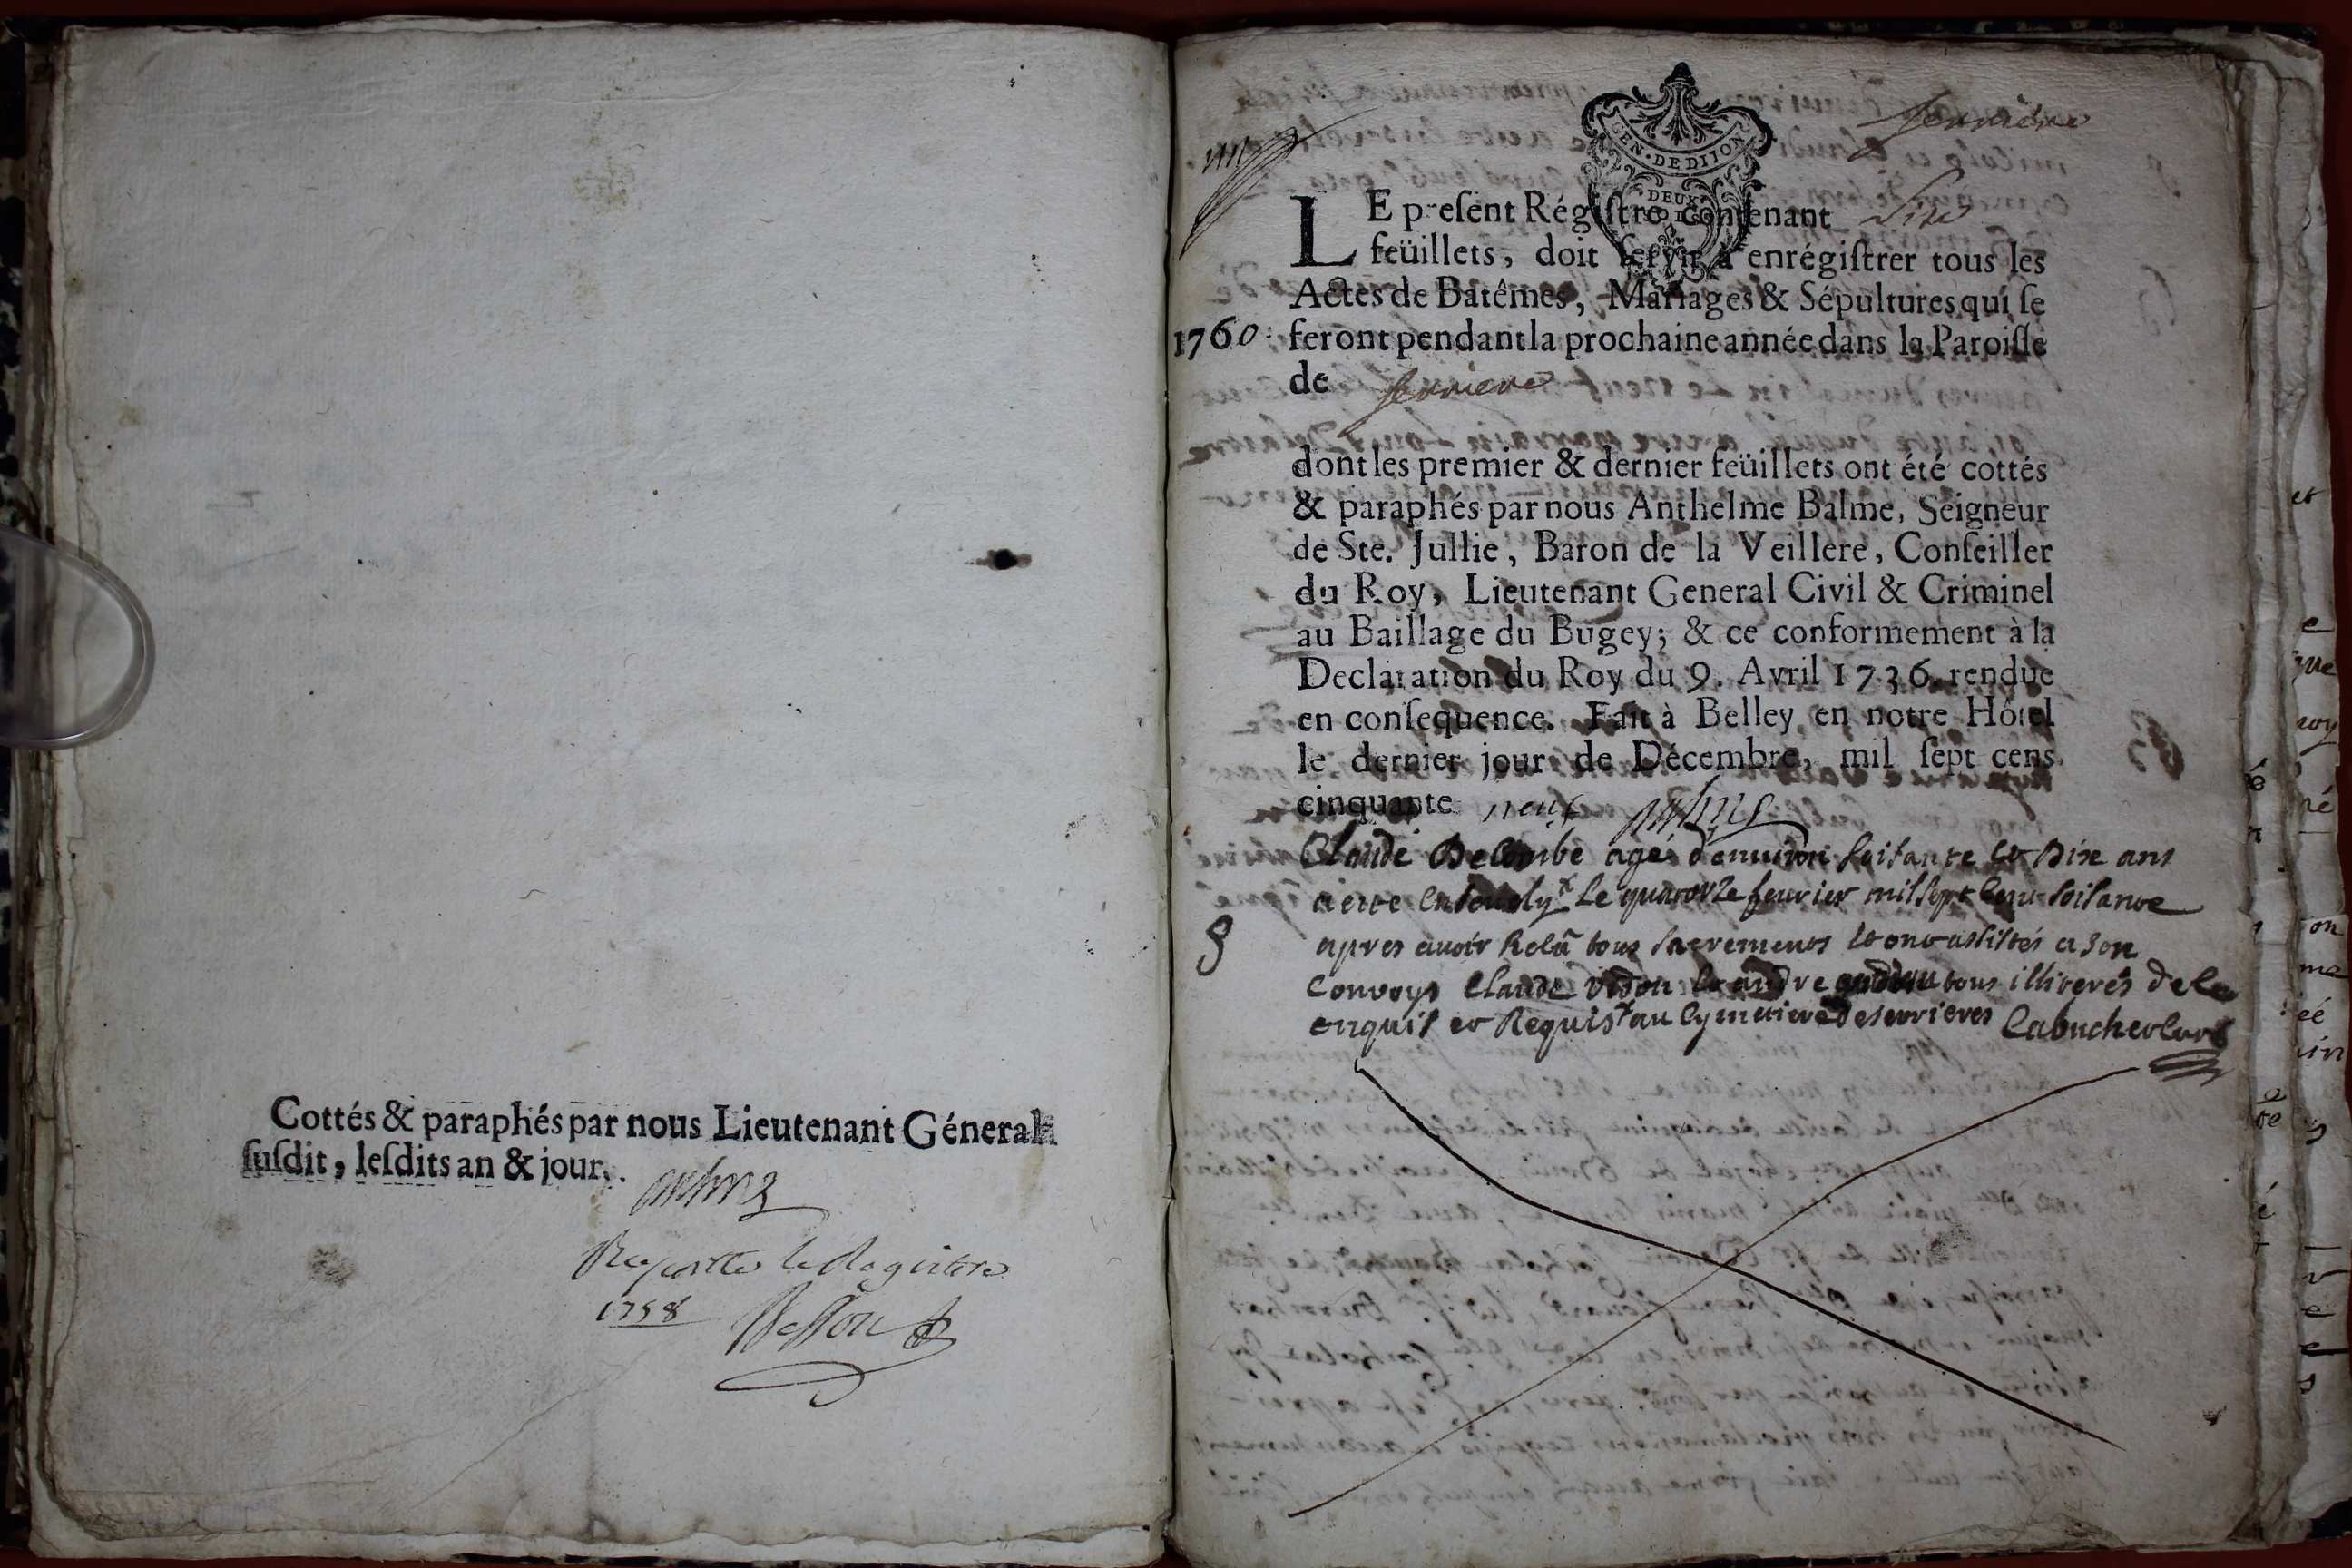 Cottés & paraphés par nous Lieutenant Géneral
ſuſdit, leſdits an & jour.
1758
GEN · DE DIJON
DEUX
Serriere
LE preſent Régiſtre contenant Six
feüillets, doit ſervir à enrégiſtrer tous les
Actes de Batêmes, Mariages & Sépultures qui ſe
1760. feront pendant la prochaine année dans la Paroiſſe
de Serriere
dont les premier & dernier feüillets ont été cottés
& paraphés par nous Anthelme Balme, Seigneur
de Ste. Jullie, Baron de la Veillere, Conſeiller
du Roy, Lieutenant General Civil & Criminel
au Baillage du Bugey; & ce conformement à la
Declaration du Roy du 9. Avril 1736. rendue
en conſequence. Fait à Belley en notre Hôtel
le dernier jour de Décembre, mil ſept cens
cinquante neuf
Claude Decombe agé d'environ soisante et Dix ans
a eté ensevely le quatorze fevrier mil sept cent soisante
apres avoir Reçu tous sacrements et ont assistés a son
Convoys Claude et andre tous illiterés de ce
enquis et Requis au Cymetiere de serrieres